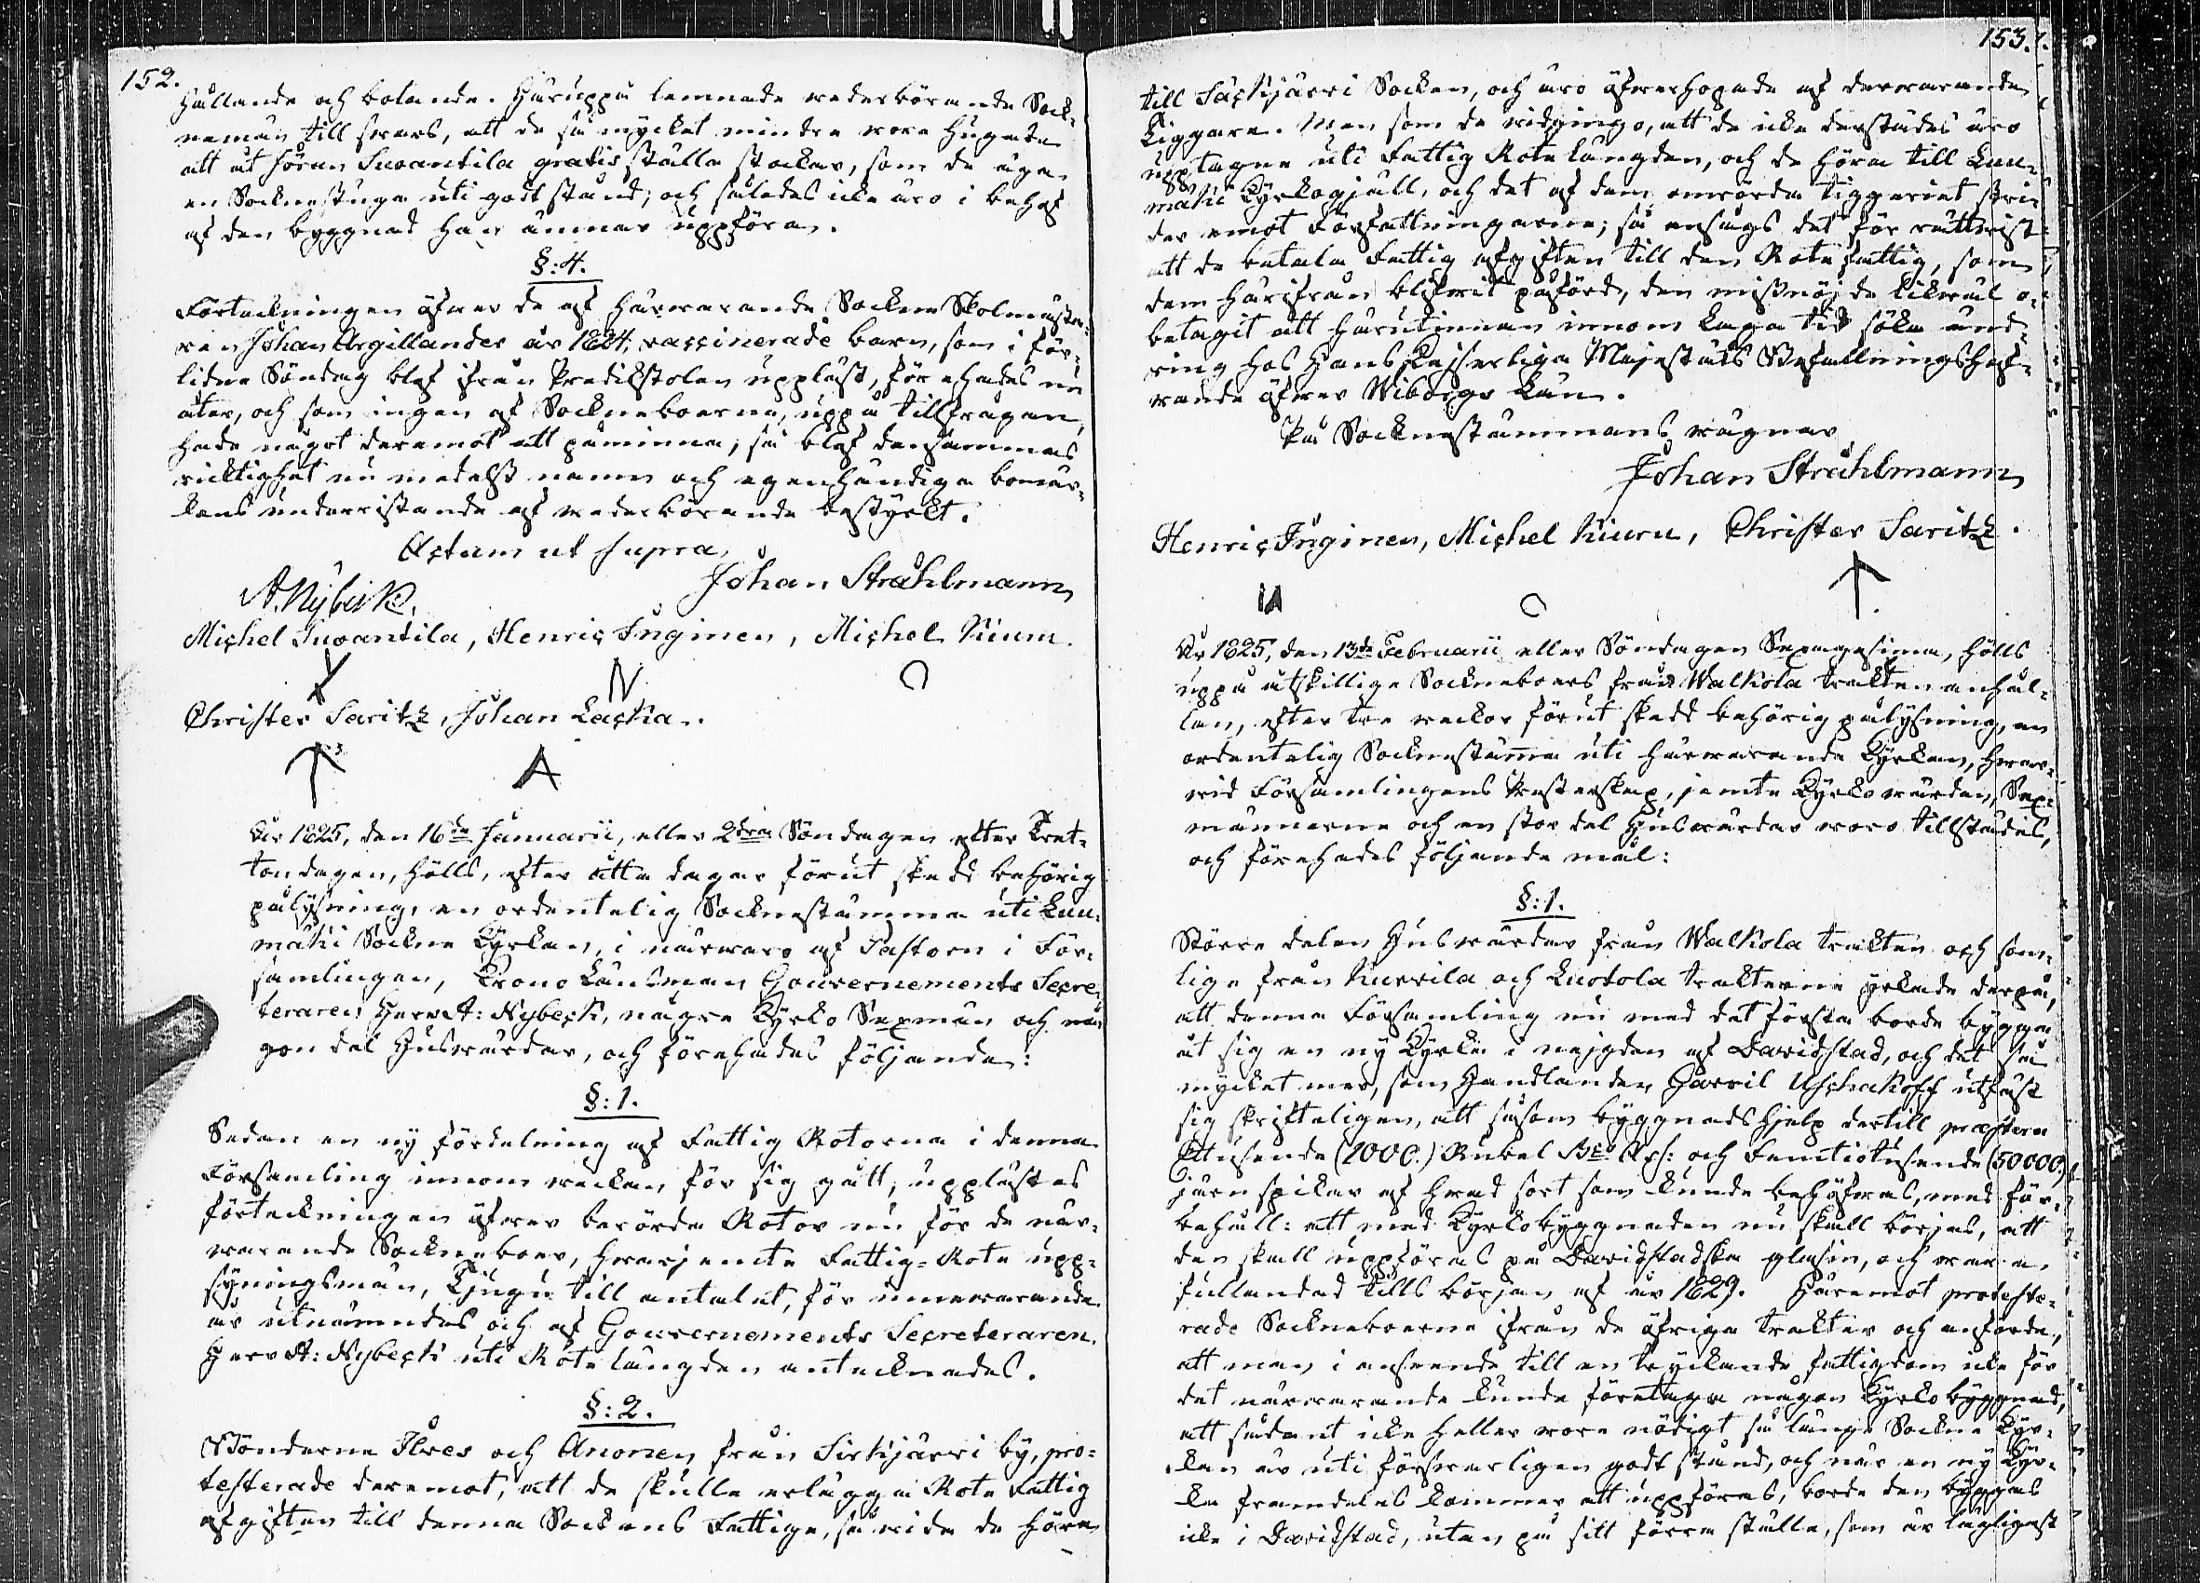 152.
hållande och botande. Häruppå lemnade wederbörande Sock-
nemän till swars, att de så mycket mindre wore hugade
att åt herrn Suoantila gratis ställa stockar, som de äga
en Sockenstuga uti godt stånd, och således icke äro i behof
af den byggnad han ämnar uppföra.
§:4.
Förteckningen öfwer de af härwarande Sockne Skolmästa-
ren Johan Argillander år 1824, vaccinerade barn, som i för-
liden Söndag blef ifrån Predikstolen uppläst, förehades nu
åter, och som ingen af Sockneboerne, uppå tillfrågan,
hade något deremot att påminna; så blef densammas
ricktighet nu medelst namn och egenhändiga bomär-
kens underristande af wederbörande bestyrkt.
Actum ut supra,
Johan Stråhlmann
A. Nybeck.
Michel Suoantila, Henric Inginen, Michel Kiuru.
Christer Saritz, Johan Lacka.
År 1825, den 16de Januarii, eller 2dra Söndagen efter Tret-
tondagen, hölls, efter åtta dagar förut skedd behörig
pålysning, en ordentelig Socknestämma uti Luu-
mäki Sockne Kyrkan, i närwaro af Pastorn i För-
samlingen, Krono Länsman Gouvernements Secre-
teraren Herr A: Nybeck, några Kyrko Sexmän och nå-
gon del Huswärdar, och förehades följande:
§:1.
Sedan en ny fördelning af Fattig Rotorna i denna
Församling innom weckan för sig gått, upplästes
förteckningen öfwer berörda Rotor nu för de när-
warande Socknaboer, hwarjemte Fattig-Rote upp-
syningsmän, Tjugu till antalet, för innewarande
år utnämndes och af Gouvernements Secreteraren
Herr A: Nybeck uti Rote längden antecknades.
§:2.
Bönderne Ilves och Anonen från Sirkjärvi by, pro-
testerade deremot, att de skulle erlägga Rote Fattig
afgiften till denna Sockens Fattige, så wida de höra
153.
till Säckjärvi Socken, och äro öfwerhopade af derwarande
tiggare. Men som de widgingo, att de icke derstädes äro
upptagne uti Fattig Rote längden, och de höra till Luu-
mäki Kyrkogjäll, och det af dem omrörda tiggeriet stri-
der emot Författningarne; så ansågs det för rättwist
att de betala Fattig afgiften till den Rote fattig, som
dem härifrån blifwit påförd, den missnöjde likwäl o-
betagit att härutinnan innom laga tid söka änd-
ring hos Hans Kejserliga Majestäts Befallningshaf-
wande öfwer Wiborgs Län.
På Socknestämmans wägnar
Johan Stråhlmann
Henric Inginen, Michel Kiuru, Christer Saritz.
År 1825, den 13de Februarii eller Söndagen Sexagesima, hölls
uppå åtskillige Socknaboers från Walkola trakten anhål-
lan, efter tre weckor förut skedd behörig pålysning, en
ordentelig Socknestämma uti härwarande Kyrkan, hwar-
wid Församlingens Presterskap, jemte Kyrkowärden, Sex-
männerne och en stor del Huswärdar woro tillstädes,
och förehades följande mål:
§:1.
Större delen Huswärdar från Walkola trakten och som-
lige från Kurvila och Luotola trakterne yrkade derpå,
att denna Församling nu med det första borde bygga
åt sig en ny Kyrka i nejgden af Davidstad, och det så
mycket mer, som Handlanden Gavril Uschakoff utfäst
sig skrifteligen, att såsom byggnads hjelp dertill præstera
Ettusende (1000.) Rubel Bco Ass: och Femtiotusende (50000.)
järn spikar af hwad sort som kunde behöfwas, med för-
behåll: att med Kyrkobyggnaden nu skall börjas, att
den skall uppföras på Davidstadska glasin, och wara
fullendad tills början af år 1829. Häremot proteste-
rade Socknaboerne ifrån de öfriga trakter och anförde,
att man i anseende till en tryckande fattigdom icke för
det närwarande kunde företaga någon Kyrkobyggnad,
att sådant icke heller wore nödigt så länge Sockne Kyr-
kan är uti förswarligen godt stånd, och när en ny Kyr-
ka framdeles kommer att uppföras, borde den byggas
icke i Davidstad, utan på sitt förra ställe, som är lägligast